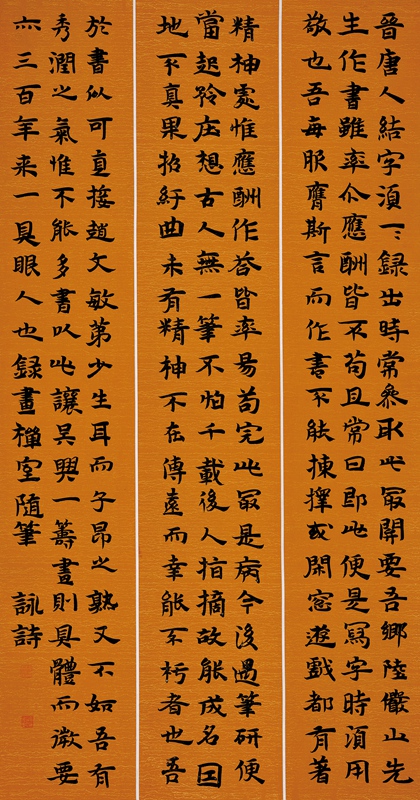 晉唐人結字須一一録出時常參取此冣關要吾鄉陸儼山先
生作書雖率尒應酬皆不苟且常曰即此便是寫字時須用
敬也吾每服膺斯言而作書不能揀擇或閑窓遊戲都有著
精神處惟應酬作荅皆率易苟完此冣是病今後遇筆研便
當起矜庄想古人無一筆不怕千載後人指摘故能成名囙
地不真果招紆曲未有精神不在傳遠而幸能不朽者也吾
於書似可直接趙文敏苐少生耳而子昂之熟又不如吾有
秀潤之氣惟不能多書以此讓吳興一籌畫則具體而微要
亦三百年来一具眼人也録畫禪室隨筆 詠詩